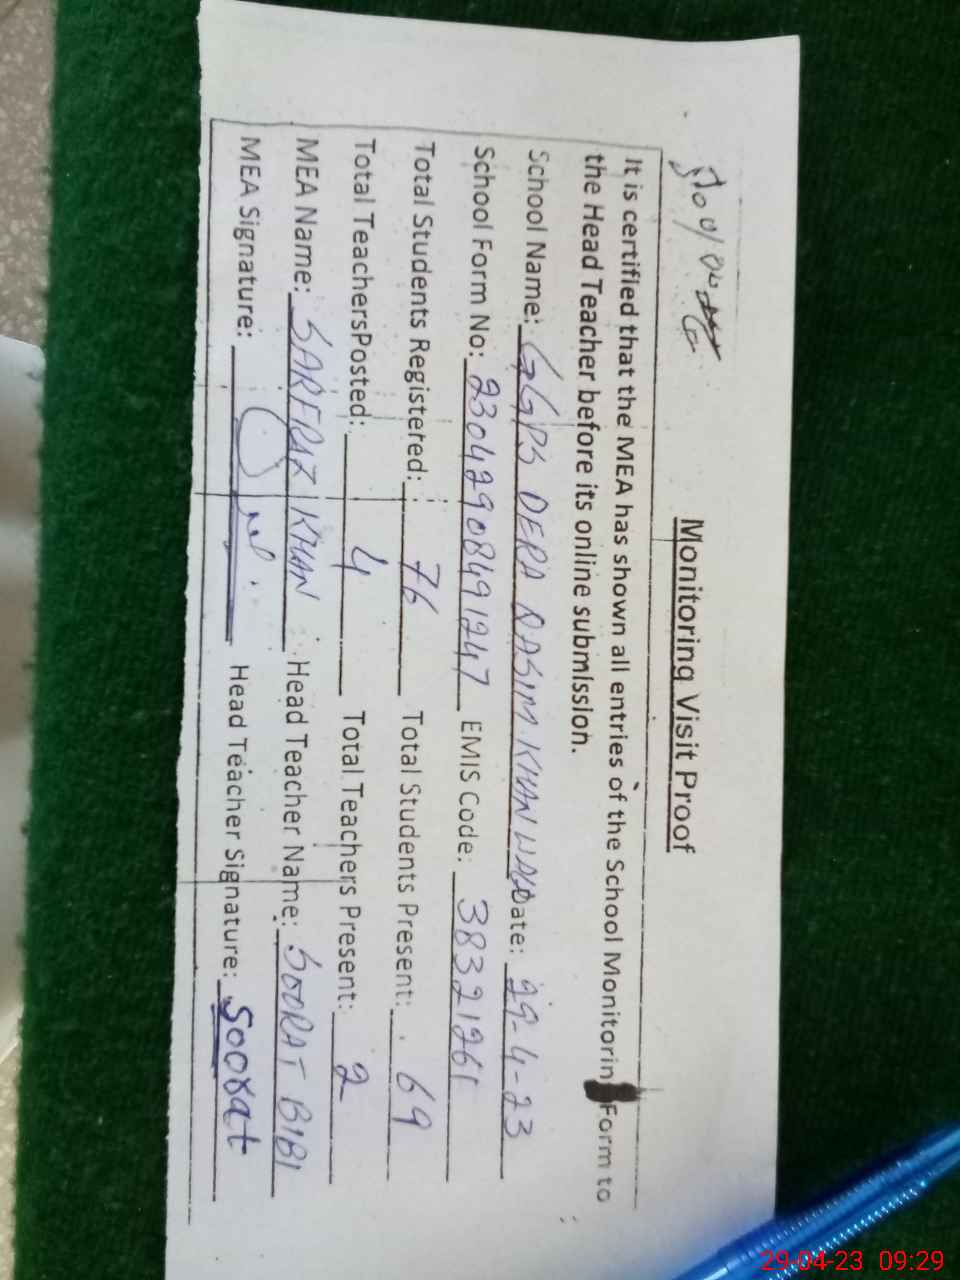 Monitoring Visit Proof
It is certified that the MEA has shown all entries of the School Monitorin Form to
the Head Teacher before its online submission.
School Name: GGPS DERA QASIM KHAN WALA Date: 29-4-23
School Form No: 23042908491247 EMIS Code: 38321261
Total Students Registered: 76 Total Students Present: 69
Total TeachersPosted: 4 Total Teachers Present: 2
MEA Name: SARFRAZ KHAN Head Teacher Name: SOORAT BIBI
MEA Signature: Head Teacher Signature: Soorat
29-04-23 09:29